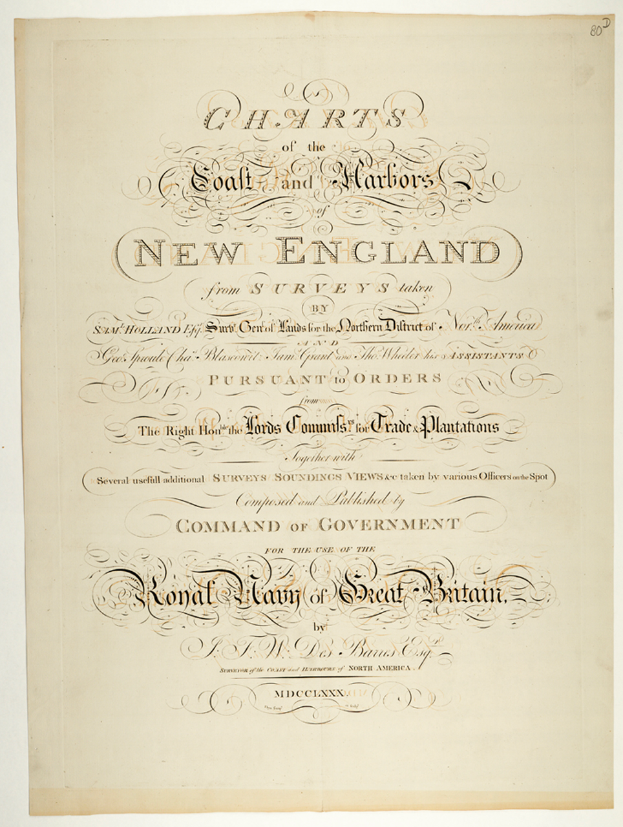 80D
CHARTS
of the
Coast and Harbors
of
NEW ENGLAND
from SURVEYS taken
BY
SAML. HOLLAND Esqr. Survr. Genl. of Lands for the Northern District of Norh. America
AND
Geo. Sproule Chas. Blascowit Jams. Grant and Thos. Wheeler his ASSISTANTS
PURSUANT to ORDERS
from
The Right Honble. the Lords Commissrs. for Trade & Plantations
Together with
Several usefull additional SURVEYS SOUNDINGS VIEWS &c taken by various Officers on the Spot
Composed and Published by
COMMAND OF GOVERNMENT
FOR THE USE OF THE
Royal Navy of Great-Britain.
by
J. F. W. Des Barres Esqr.
SURVEYOR of the COAST and HARBOURS of NORTH AMERICA.
MDCCLXXX